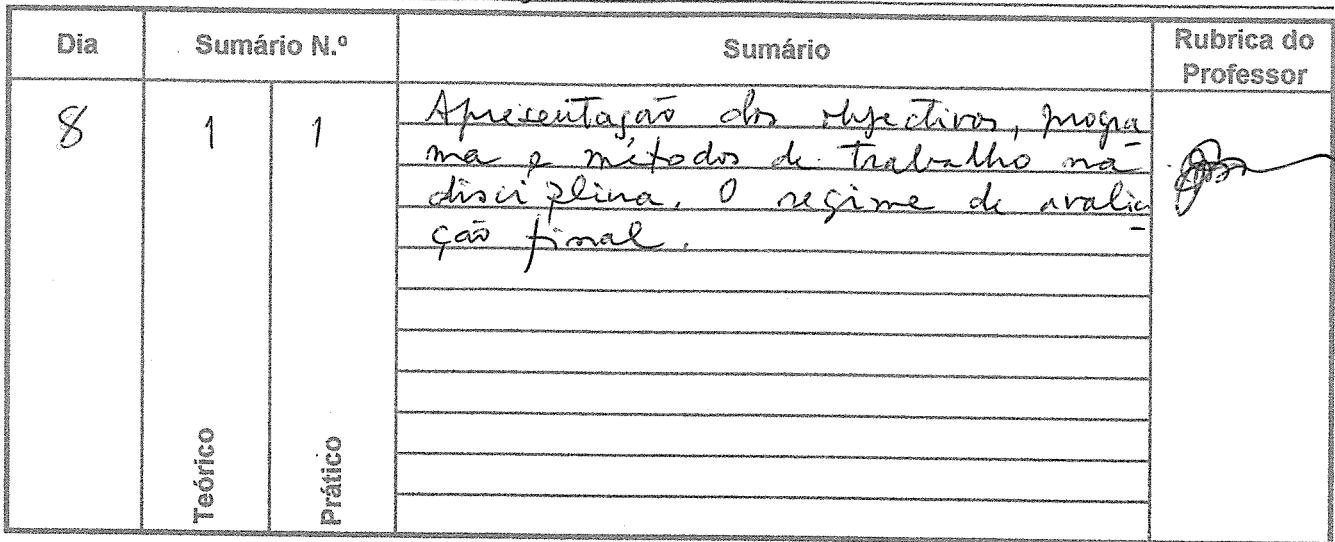 Dia Sumário N.º Sumário Rubrica do Professor
8 1 1
Apresentação dos objectivos, progra-
ma e métodos de trabalho na
disciplina. O regime de avalia-
ção final.
Teórico Prático